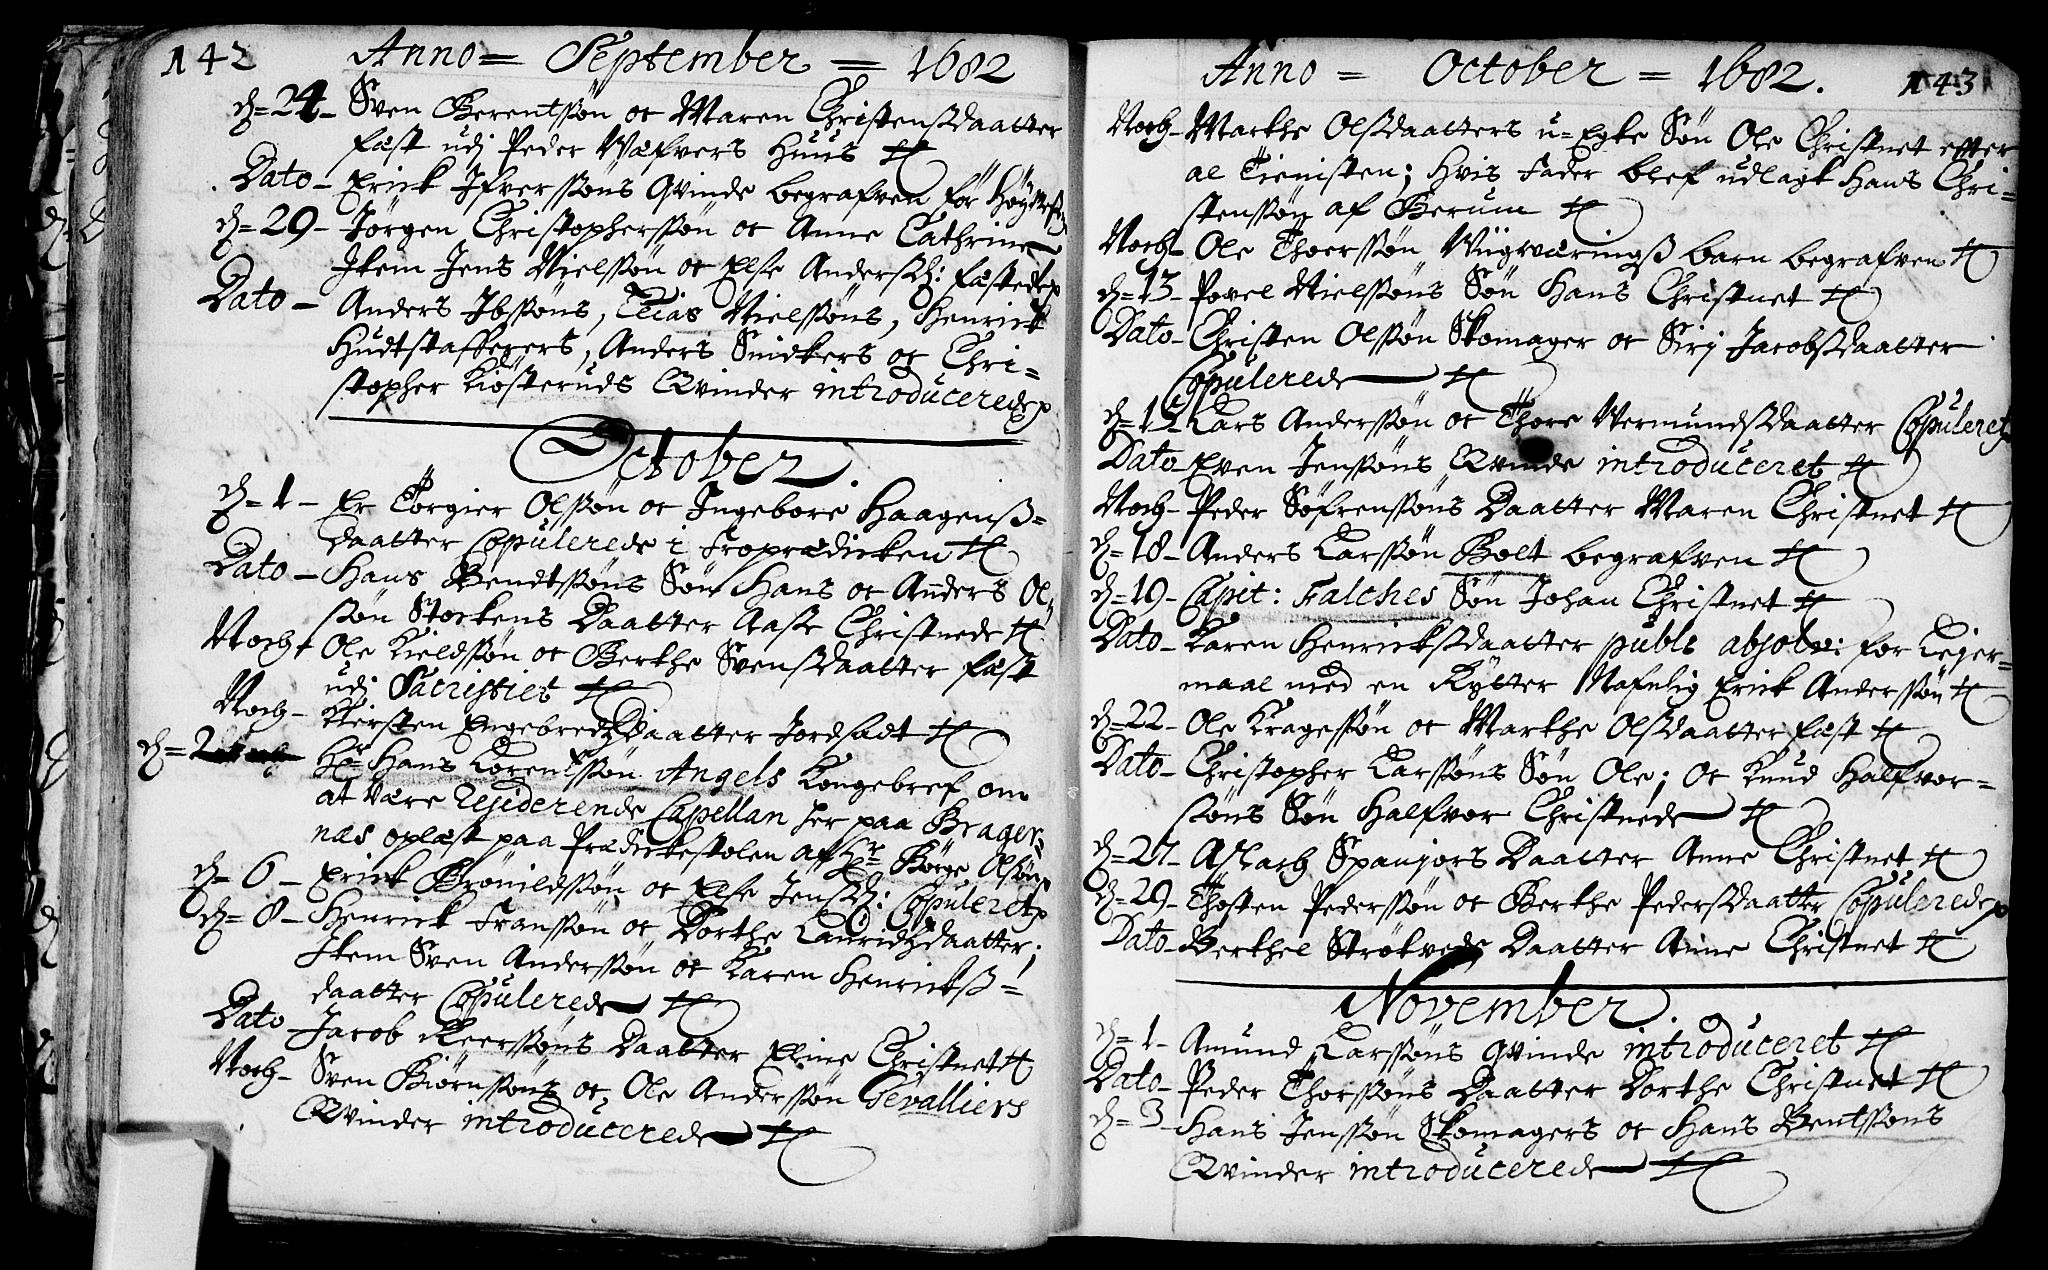 142 Anno = September = 1682
d. = 24 - Sven Berentssøn oc Maren Christensdaatter
fæst udj Peder Wæfvers Huus
Dato - Erick Ifverssøns Qvinde begrafven for Høymeß
d. = 29 - Jørgen Christopherssøn oc Anne Cathrine
Item Jens Nielssøn oc Else Andersd: fæstede
Dato - Anders Ibssøns, Elias Nielssøns, Henrick
Hudtstafferers, Anders Snidkers oc Chri=
stopher Kiøsteruds Qvinder introducerede
October
d. = 1 - Er Törgier Olssøn oc Ingebore Haagenß=
daatter Copulerede i froprædicken
Dato - Hans Bendtssøns Søn Hans oc Anders Ol=
søn Stockens Daatter Aase Christnede
Noch - Ole Kieldssøn oc Berthe Svensdaatter fæst
udj Sacristiet
Noch - Kirsten Engebredtzdaatter Jordsadt
d. = 2 Hr Hans Lorentssøn Angels Kongebref om
at være residerende Capellan her paa Brager=
næs oplæst paa Prædickestolen af Hr Börge Olssøn
d. = 6 - Erick Brönildssøn oc Else Jensd: Copuleret
d. = 8 - Henrick Franssøn oc Dorthe Lauridtzdaatter;
Item Sven Anderssøn oc Karen Henrickß=
daatter Copulerede
Dato Jacob Peerssøns Daatter Eline Christnet
Noch - Sven Biørnssøns oc Ole Anderssøn Gevalliers
Qvinder introducerede
Anno = October = 1682. 143
Noch - Marthe Olsdaatters u=Egte Søn Ole Christnet efter
al Tienisten; hvis Fader blef udlagt Hans Chri=
stenssøn af Berum
Noch - Ole Thoerssøn Wiigværingß barn begrafven
d. = 13 - Povel Nielssøns Søn Hans Christnet
Dato - Christen Olssøn Skomager oc Sirj Jacobsdaatter
Copulerede
d. = 15 - Lars Anderssøn oc Thore Wermundsdaatter Copuleret
Dato - Even Jenssøns Qvinde introduceret
Noch - Peder Søfrenssøns Daatter Maren Christnet
d. = 18 - Anders Larssøn Bolt begrafven
d. = 19 - Capit: Falches Søn Johan Christnet
Dato - Karen Henricksdaatter publs absolv: for Lejer=
maal med en Rytter Nafnlig Erick Anderssøn
d. = 22 - Ole Kragessøn oc Marthe Olsdaatter fæst
Dato - Christopher Larssøns Søn Ole; oc Knud Halfvor=
søns Søn Halfvor Christnede
d. = 27 - Aslach Spanjors Daatter Anne Christnet
d. = 29 - Thosten Pederssøn oc Berthe Pedersdaatter Copulerede
Dato - Berthel Strøtveds Daatter Anne Christnet
November.
d. = 1 - Amund Larssøns Qvinde introduceret
Dato - Peder Thorssøns Daatter Dorthe Christnet
d. = 3 - Hans Jenssøn Skomagers oc Hans Bentssøns
Qvinder introducerede